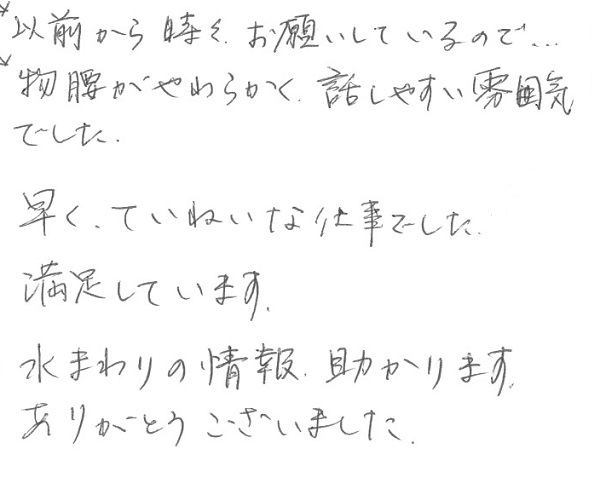 以前から時々、お願いしているので…
物腰がやわらかく、話しやすい雰囲気
でした。
早く、ていねいな仕事でした。
満足しています。
水まわりの情報、助かります。
ありがとうございました。